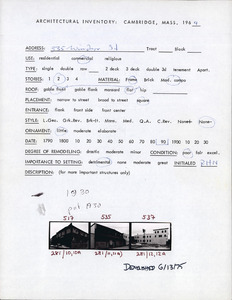 ARCHITECTURAL INVENTORY: CAMBRIDGE, MASS. 196
ADDRESS: 535 Tract block
USE: residential commercial religious
TYPE: single double row 2 deck 3 deck double 3d tenement Apart.
STORIES: 1 2 3 4 MATERIAL: Frame Brick Mod.
ROOF: gable gable flank mansard flat hip
PLACEMENT: narrow to street broad to street square
ENTRANCE: flank front side front center
STYLE: L.Geo. Gk.Rev. Ital. Mans. Med. Q.A. C.Rev. None
ORNAMENT: moderate elaborate
DATE: 1790 1800 10 20 30 40 50 60 70 80 90 1900 10 20 30
DEGREE OF REMODELING: drastic moderate minor CONDITION: poor fair excel.
IMPORTANCE TO SETTING: detrimental none moderate great INITIALED:
DESCRIPTION: (for more important structures only)
517 535 537
281/10,10A 281/11,11A 281/12,12A
Demolished 6/13/75